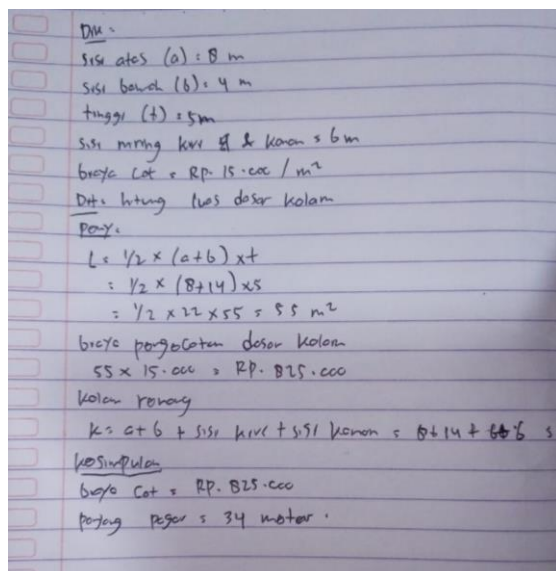 Dik :
sisi atas (a) = 8 m
sisi bawah (b) = 4 m
tinggi (t) = 5m
sisi miring kiri & kanan = 6 m
biaya Cat = Rp. 15.000 / m²
Dit = hitung luas dasar kolam
Peny.
L = 1/2 × (a+b) × t
= 1/2 × (8+14) × 5
= 1/2 × 22 × 55 = 55 m²
biaya pengecatan dasar kolam
55 × 15.000 = RP. 825.000
kolam renang
K = a+b + sisi kiri + sisi kanan = 8+14+6+6 =
kesimpulan
biaya Cat = RP. 825.000
panjang pagar = 34 meter.